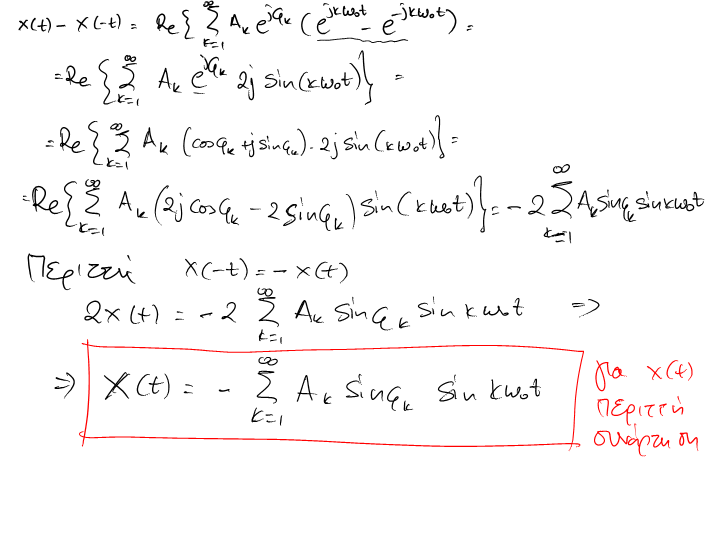 x(t) - x(-t) = Re{ ∑_{k=1}^{∞} A_k e^{jφ_k} (e^{jkω₀t} - e^{-jkω₀t}) =
= Re{ ∑_{k=1}^{∞} A_k e^{jφ_k} 2j sin(kω₀t) } =
= Re{ ∑_{k=1}^{∞} A_k (cosφ_k + j sinφ_k) · 2j sin(kω₀t) } =
= Re{ ∑_{k=1}^{∞} A_k (2j cosφ_k - 2 sinφ_k) sin(kω₀t) } = - 2 ∑_{k=1}^{∞} A_k sinφ_k sin kω₀t
Περιττή x(-t) = - x(t)
2x(t) = - 2 ∑_{k=1}^{∞} A_k sinφ_k sin kω₀t ⇒
⇒ x(t) = - ∑_{k=1}^{∞} A_k sinφ_k sin kω₀t
για x(t)
περιττή
συνάρτηση